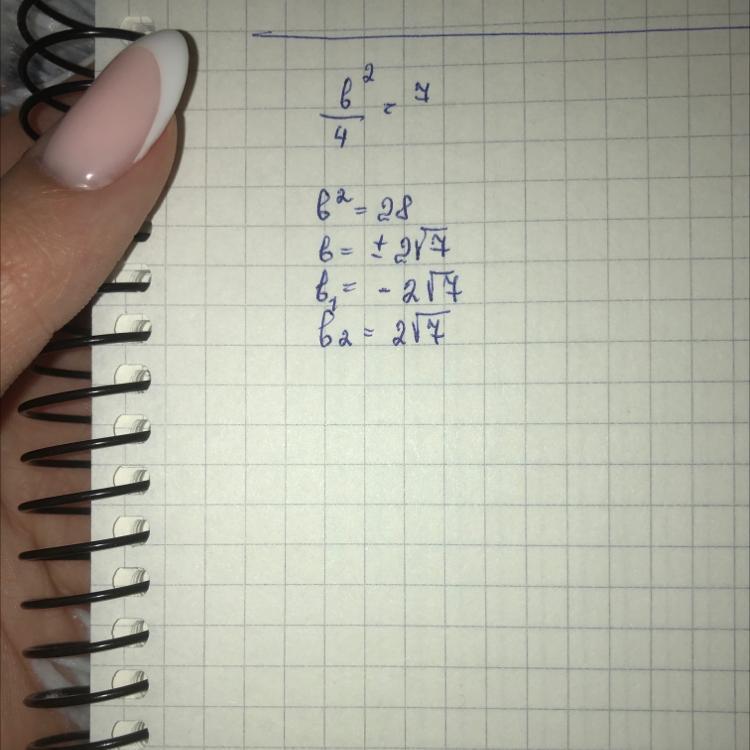 b²/4 = 7
b² = 28
b = ± 2√7
b₁ = - 2√7
b₂ = 2√7